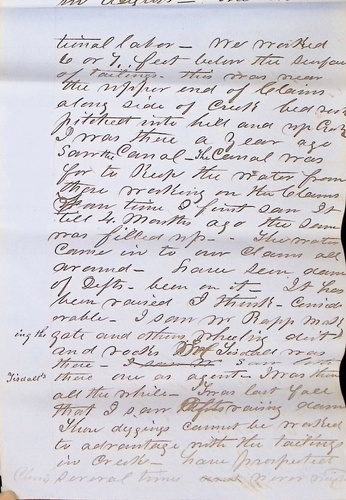 tional labor - We worked
6 or 7 feet below the surface
of tailings. this was near
the upper end of Claims
along side of Creek bed
pitched into hill and up
I was there a year ago
Saw the Canal - The Canal was
for to Keep the water from
those working on the Claims
time I first saw It
till 4 Months ago the same
was filled up - The water
Came in to our Claims all
around - have seen dam
of Defts - been on it - It has
been raised I think - Consid
erable - I saw Mr Rapp mak
ing the gate and others wheeling dirt
and rocks Tisdall was
there -
Tisdalls there one as agent - I was there
all the while - I was last fall
that I saw Defts raising dam
These diggings cannot be worked
to advantage with the tailings
in Creek - have prospected
several times